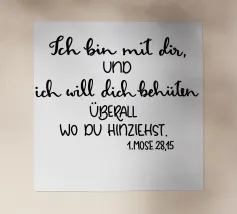 Ich bin mit dir,
UND
ich will dich behüten
ÜBERALL
WO DU HINZIEHST.
1.MOSE 28,15